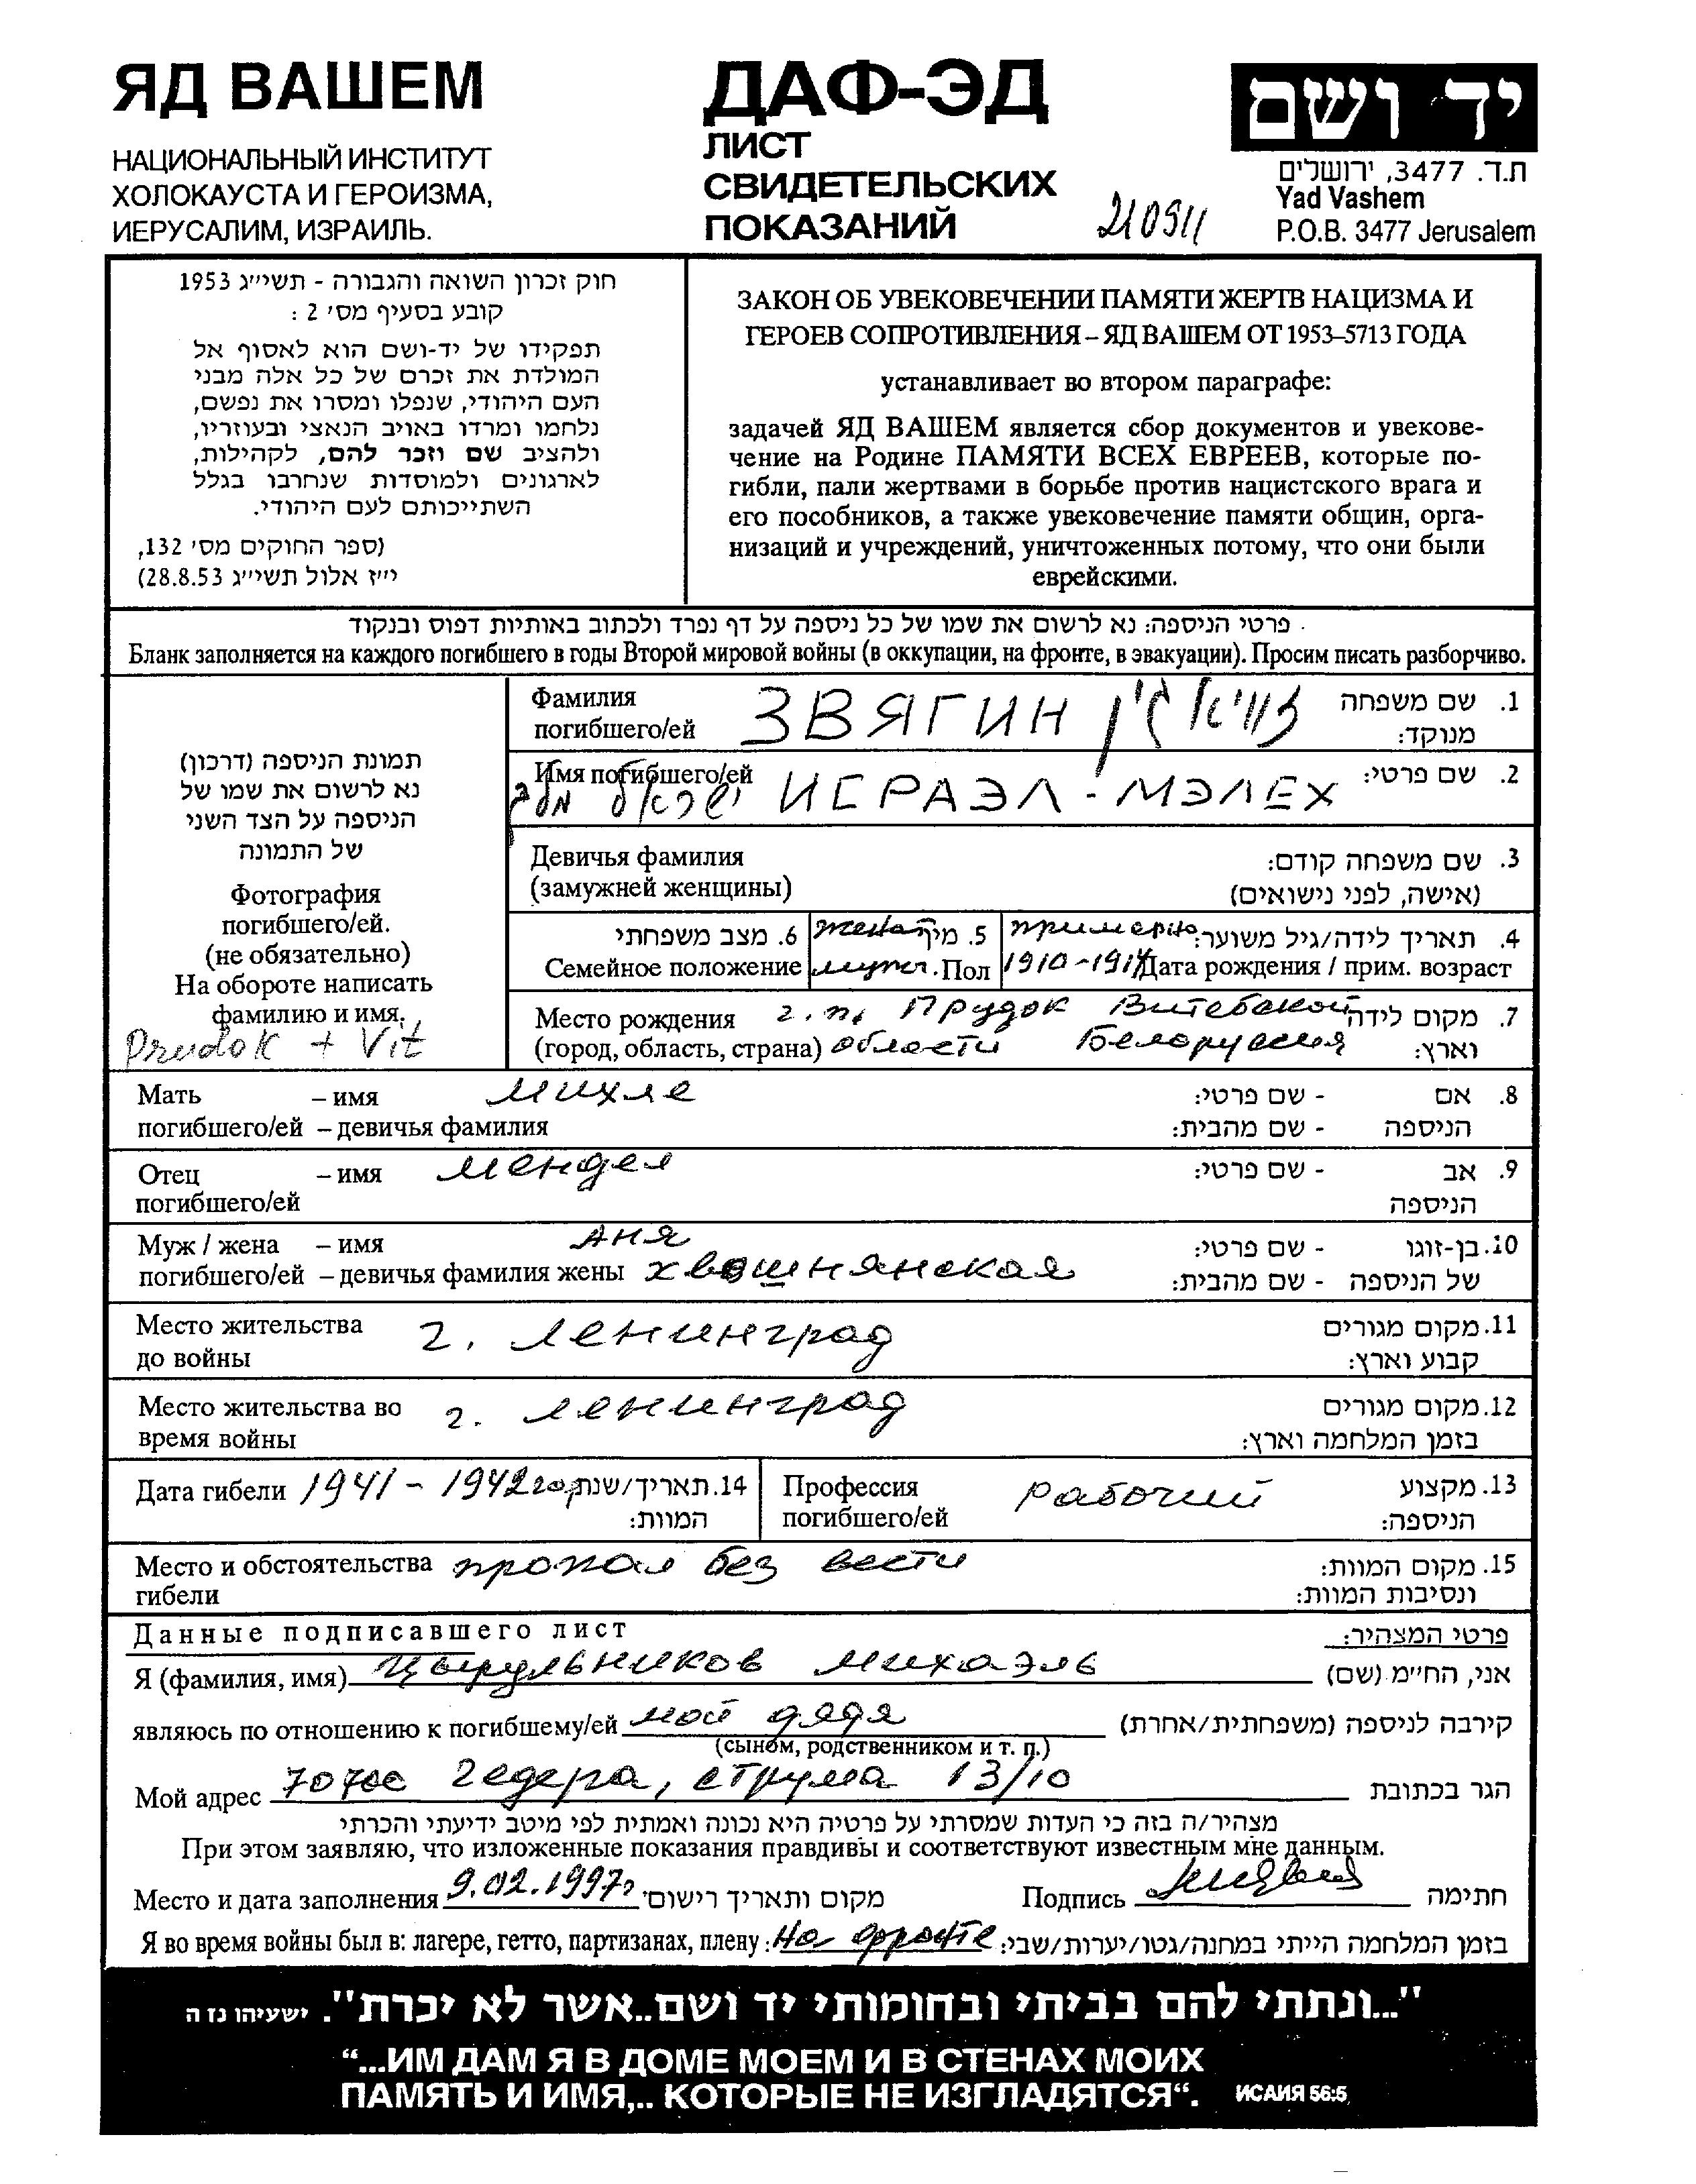 ЯД ВАШЕМ
НАЦИОНАЛЬНЫЙ ИНСТИТУТ
ХОЛОКАУСТА И ГЕРОИЗМА,
ИЕРУСАЛИМ, ИЗРАИЛЬ.
ДАФ-ЭД
ЛИСТ
СВИДЕТЕЛЬСКИХ
ПОКАЗАНИЙ
יד ושם
ת.ד. 3477, ירושלים
Yad Vashem
P.O.B. 3477 Jerusalem
חוק זכרון השואה והגבורה - תשי״ג 1953
קובע בסעיף מס׳ 2 :
תפקידו של יד-ושם הוא לאסוף אל
המולדת את זכרם של כל אלה מבני
העם היהודי, שנפלו ומסרו את נפשם,
נלחמו ומרדו באויב הנאצי ובעוזריו,
ולהציב שם וזכר להם, לקהילות,
לארגונים ולמוסדות שנחרבו בגלל
השתייכותם לעם היהודי.
(ספר החוקים מס׳ 132,
י״ז אלול תשי״ג 28.8.53)
ЗАКОН ОБ УВЕКОВЕЧЕНИИ ПАМЯТИ ЖЕРТВ НАЦИЗМА И
ГЕРОЕВ СОПРОТИВЛЕНИЯ – ЯД ВАШЕМ ОТ 1953–5713 ГОДА
устанавливает во втором параграфе:
задачей ЯД ВАШЕМ является сбор документов и увекове-
чение на Родине ПАМЯТИ ВСЕХ ЕВРЕЕВ, которые по-
гибли, пали жертвами в борьбе против нацистского врага и
его пособников, а также увековечение памяти общин, орга-
низаций и учреждений, уничтоженных потому, что они были
еврейскими.
פרטי הניספה: נא לרשום את שמו של כל ניספה על דף נפרד ולכתוב באותיות דפוס ובנקוד
Бланк заполняется на каждого погибшего в годы Второй мировой войны (в оккупации, на фронте, в эвакуации). Просим писать разборчиво.
תמונת הניספה (דרכון)
נא לרשום את שמו של
הניספה על הצד השני
של התמונה
Фотография
погибшего/ей.
(не обязательно)
На обороте написать
фамилию и имя.
Prudok + Vit
Фамилия ЗВЯГИН 1. שם משפחה
погибшего/ей מנוקד:
Имя погибшего/ей 2. שם פרטי:
ישראל מלך ИСРАЭЛ - МЭЛЕХ
Девичья фамилия 3. שם משפחה קודם:
(замужней женщины) (אישה, לפני נישואים)
6. מצב משפחתי женат 5. מין примерно 4. תאריך לידה/גיל משוער:
Семейное положение мужск. Пол 1910-1914 Дата рождения / прим. возраст
Место рождения г.п. Прудок Витебской 7. מקום לידה
(город, область, страна) области Белоруссия וארץ:
Мать – имя Михле - שם פרטי: 8. אם
погибшего/ей – девичья фамилия - שם מהבית: הניספה
Отец – имя Мендел - שם פרטי: 9. אב
погибшего/ей הניספה
Муж / жена – имя Аня - שם פרטי: 10. בן-זוגו
погибшего/ей – девичья фамилия жены Хвошнянская - שם מהבית: של הניספה
Место жительства г. Ленинград 11. מקום מגורים
до войны קבוע וארץ:
Место жительства во г. Ленинград 12. מקום מגורים
время войны בזמן המלחמה וארץ:
Дата гибели 1941 - 1942 14. תאריך/שנת
המוות:
Профессия рабочий 13. מקצוע
погибшего/ей הניספה:
Место и обстоятельства пропал без вести 15. מקום המוות:
гибели ונסיבות המוות:
Данные подписавшего лист פרטי המצהיר:
Я (фамилия, имя) Цырульников Михаэль אני, הח״מ (שם)
являюсь по отношению к погибшему/ей мой дядя קירבה לניספה (משפחתית/אחרת)
(сыном, родственником и т. п.)
Мой адрес 70700 Гедера, Струма 13/10 הגר בכתובת
מצהיר/ה בזה כי העדות שמסרתי על פרטיה היא נכונה ואמתית לפי מיטב ידיעתי והכרתי
При этом заявляю, что изложенные показания правдивы и соответствуют известным мне данным.
Место и дата заполнения 9.02.1997г מקום ותאריך רישום Подпись חתימה
Я во время войны был в: лагере, гетто, партизанах, плену: На фронте בזמן המלחמה הייתי במחנה/גטו/יערות/שבי:
"...ונתתי להם בביתי ובחומותי יד ושם..אשר לא יכרת". ישעיהו נז ה
“...ИМ ДАМ Я В ДОМЕ МОЕМ И В СТЕНАХ МОИХ
ПАМЯТЬ И ИМЯ,.. КОТОРЫЕ НЕ ИЗГЛАДЯТСЯ“. ИСАИЯ 56:5